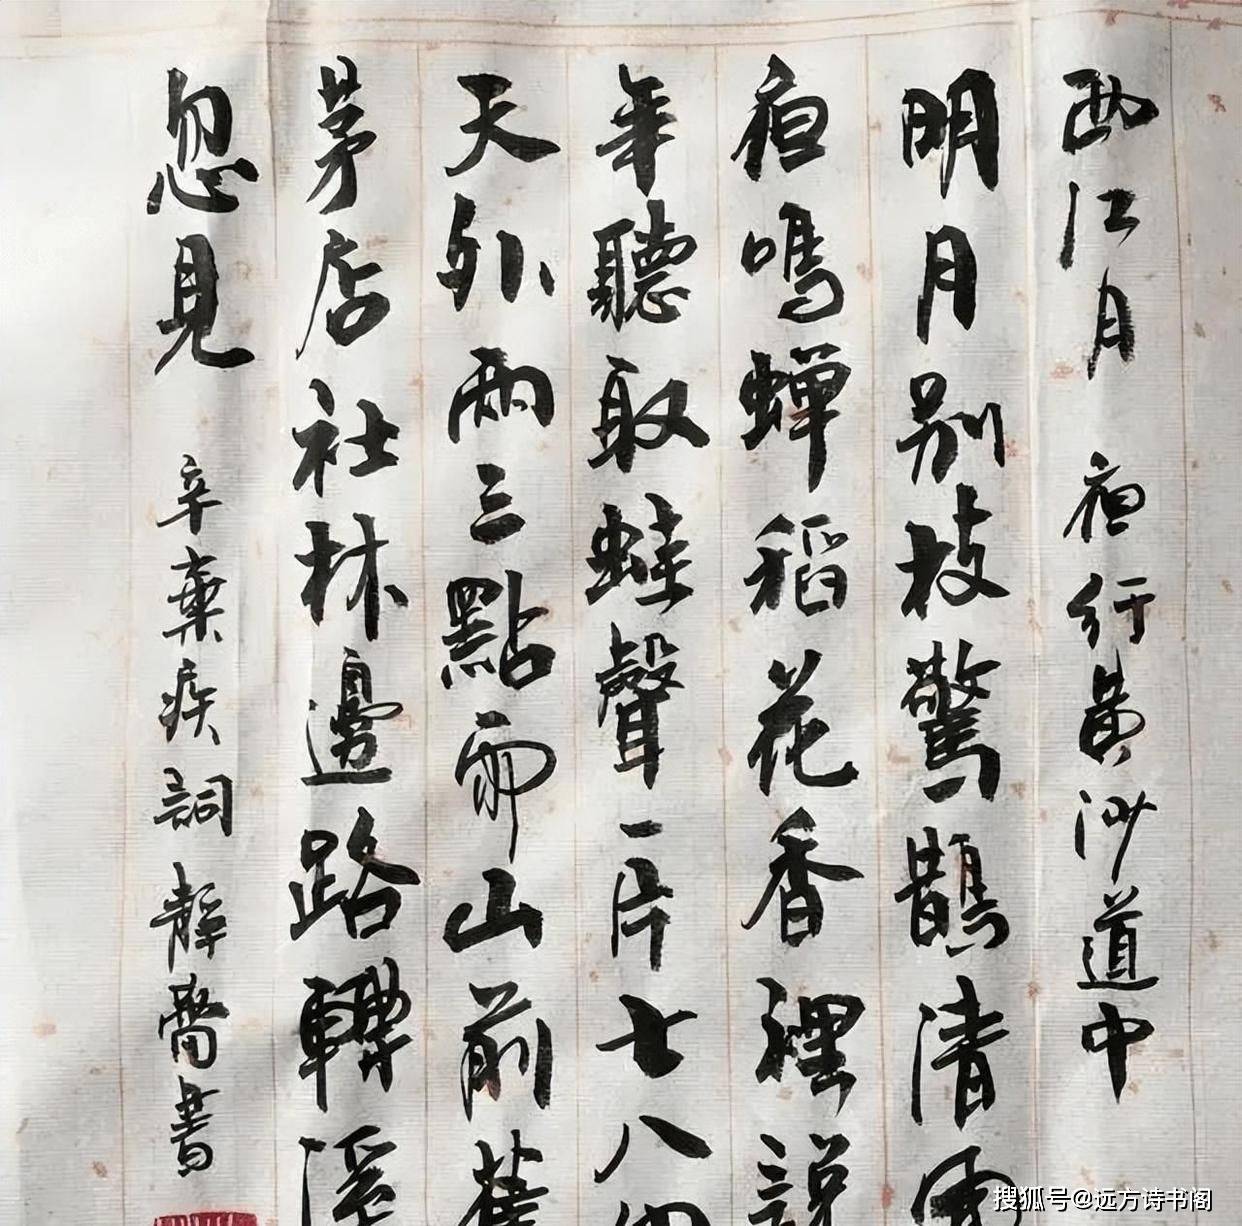 西江月 夜行黄沙道中
明月别枝驚鵲清風
夜鳴蝉稻花香裡説
年聽取蛙聲一片七八
天外兩三點雨山前舊
茅店社林邊路轉溪
忽見 辛棄疾詞 靜齋書
搜狐号@远方诗书阁